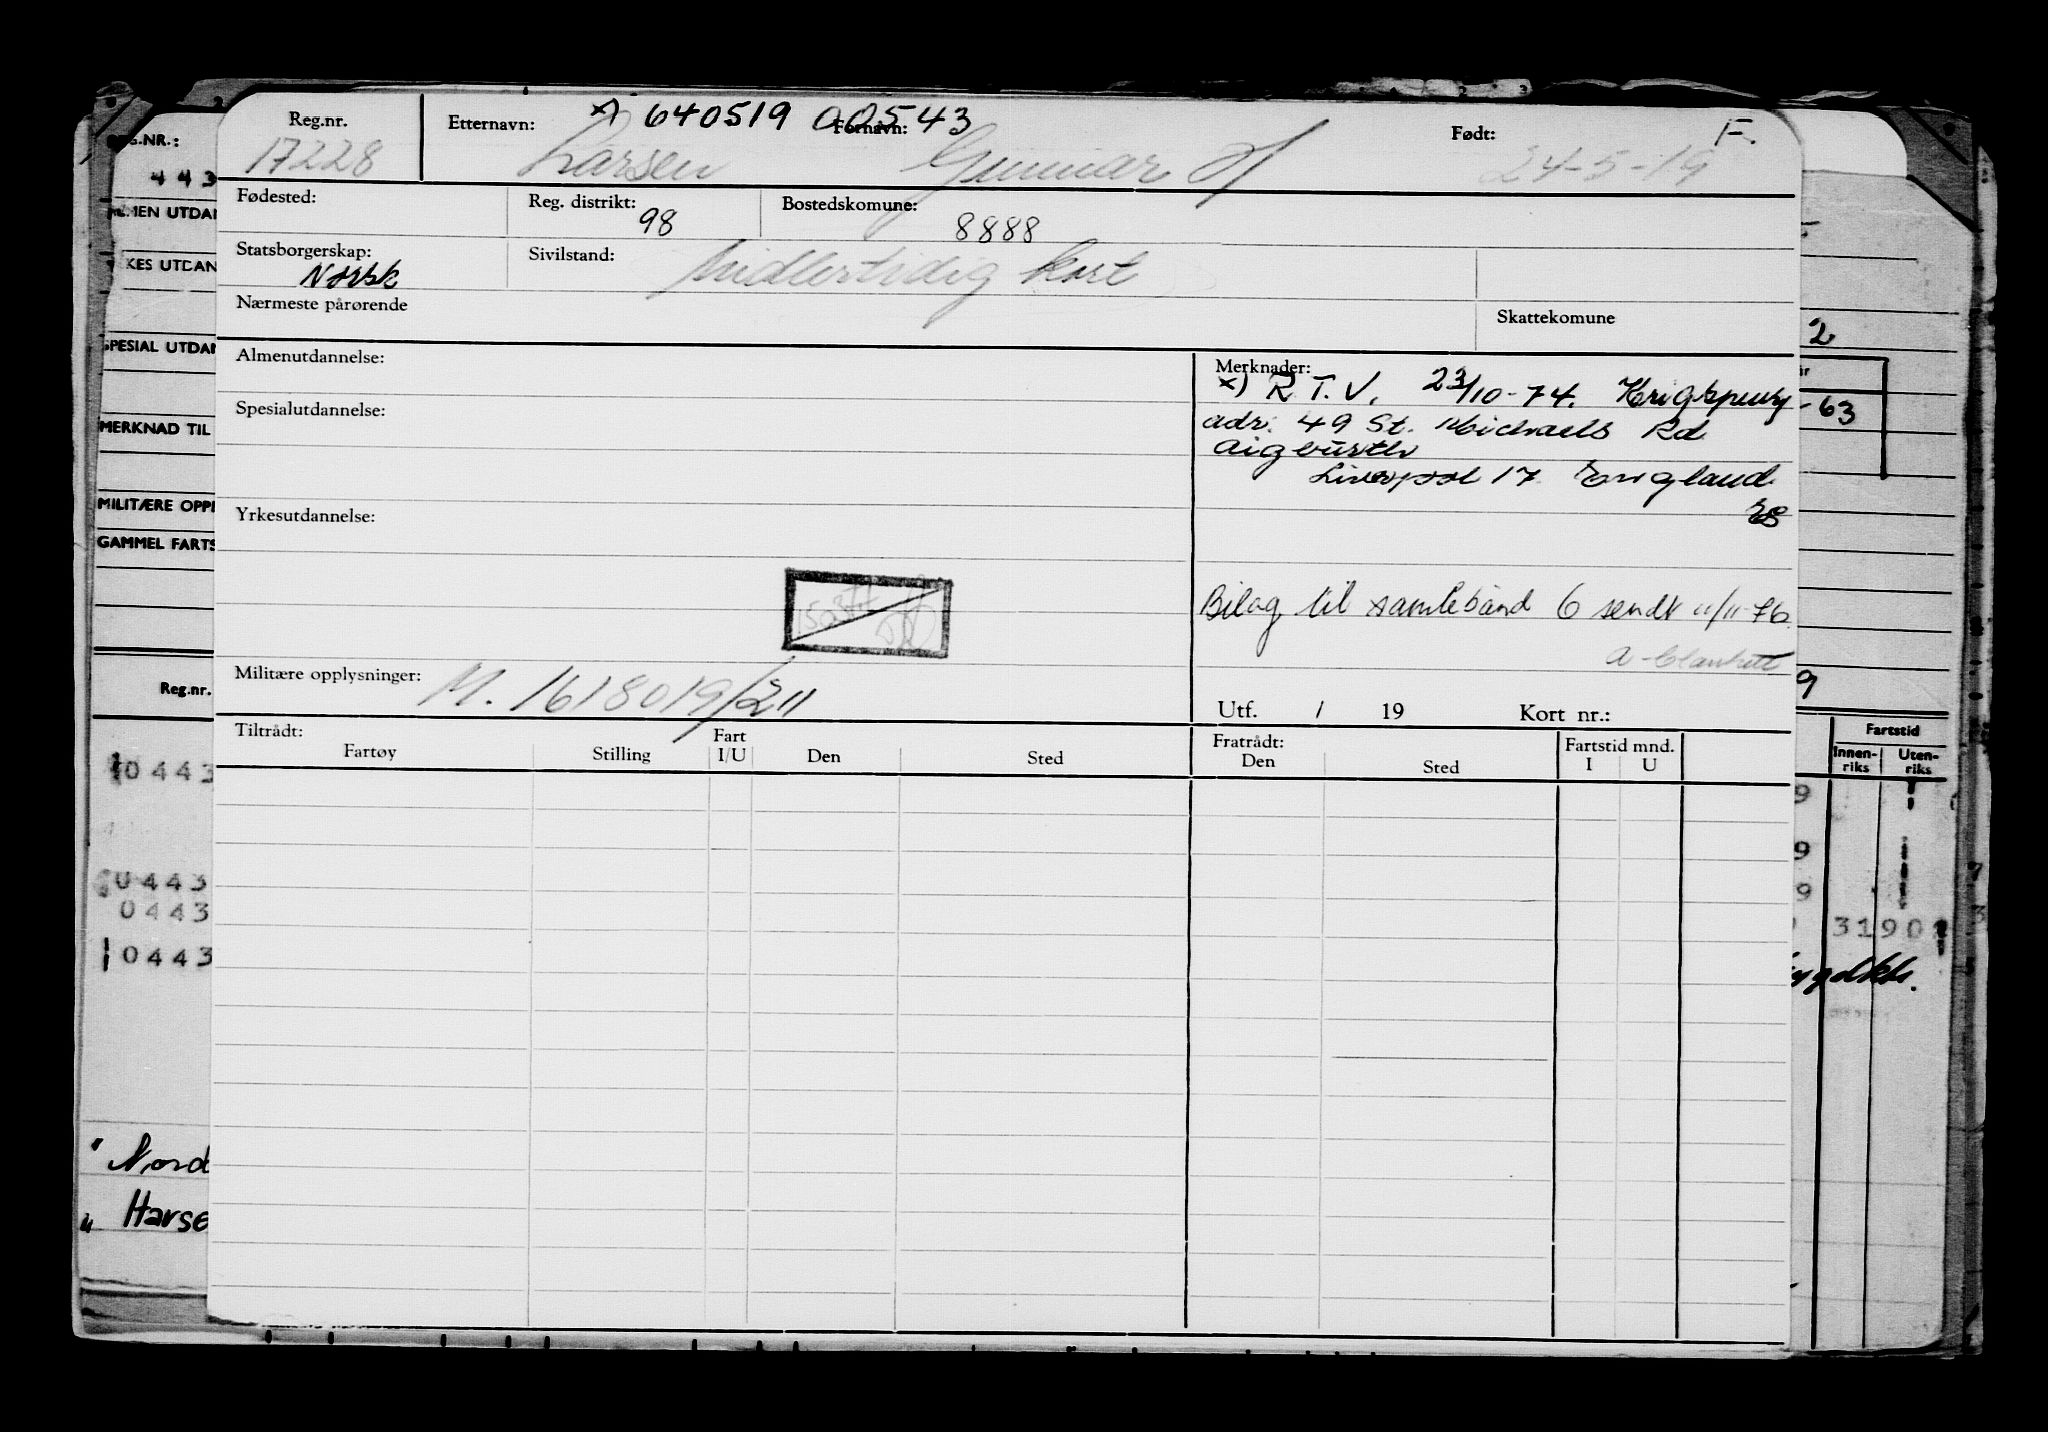 x) 640519 00543
Reg.nr. Etternavn: Fornavn: Født: F.
17228 Larsen Gunnar H 24-5-19
Fødested: Reg. distrikt: 98 Bostedskomune: 8888
Statsborgerskap: Norsk Sivilstand: Midlertidig kort
Nærmeste pårørende Skattekomune
Almenutdannelse: Merknader:
x) R.T.V. 23/10-74. Krigspensj
adr. 49 St. Michaels Rd
Spesialutdannelse: Aigburth
Liverpool 17 England
ES
Yrkesutdannelse:
Bilag til samlebånd 6 sendt 11/11-76
Militære opplysninger: M. 1618019/211
Utf. / 19 Kort nr.:
Tiltrådt: Fratrådt: Fartstid mnd.
Fartøy Stilling Fart I/U Den Sted Den Sted I U
G.NR.:
443
MEN UTDAN
KES UTDAN
SPESIAL UTDAN
MERKNAD TIL
MILITÆRE OPPL
GAMMEL FARTS
Reg.nr.
0443
0443
0443
0443
" Nord
" Harse
2
år
-63
9
Fartstid
Innen-riks Uten-riks
9
9
9
31902